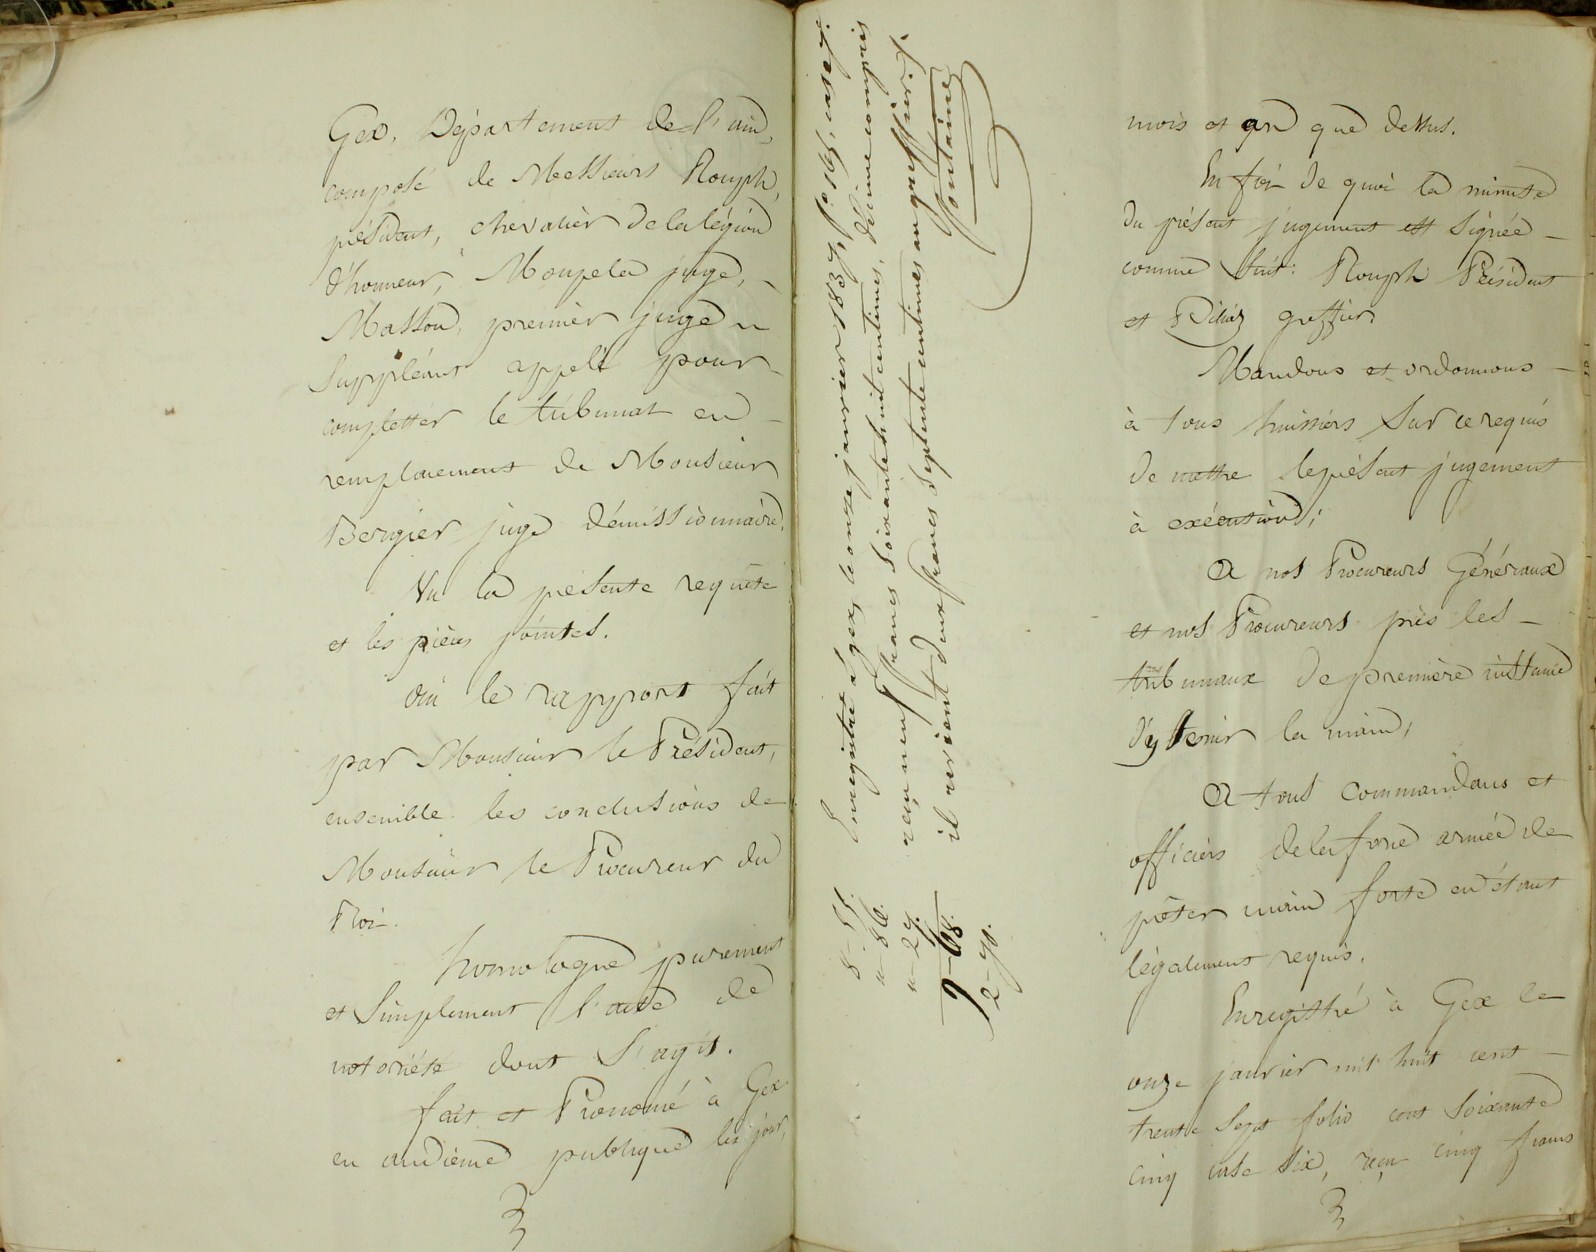 Gex, Département de l'ain,
composé de Messieurs Rouph,
président, chevalier de la légion
d'honneur, Monpela juge,
Masson, premier juge
Suppléant appelé pour
completter le tribunal en
remplacement de Monsieur
Bergier juge démissionnaire.
Vu la présente requête
et les pièces jointes.
Oui le rapport fait
par Monsieur le Président,
ensemble les conclusions de
Monsieur le Procureur du
Roi.
homologue purement
et Simplement l'acte de
notoriété dont S'agit.
fait et Prononcé à Gex
en audience publique les jour,
Enregistré à gex, le onze janvier 1837, f° 165, case 6.
reçu neuf francs soixante huit centimes, décime compris
il revient deux francs septante centimes au greffier.
fontaine
8-55.
"-86.
"-27.
9-68.
2-70.
mois et an que dessus.
En foi de quoi la minute
du présent jugement est Signée
comme Suit: Rouph Président
et greffier.
Mandons et ordonnons
à tous huissiers Sur ce requis
de mettre le présent jugement
à exécution;
A nos Procureurs Généraux
et nos Procureurs près les
tribunaux de première instance
d'y tenir la main;
A tous commandans et
officiers de la force armée de
prêter main forte en étant
légalement requis.
Enregistré à Gex le
onze janvier mil huit cent
trente Sept folio cent Soixante
cinq case Six, reçu cinq francs